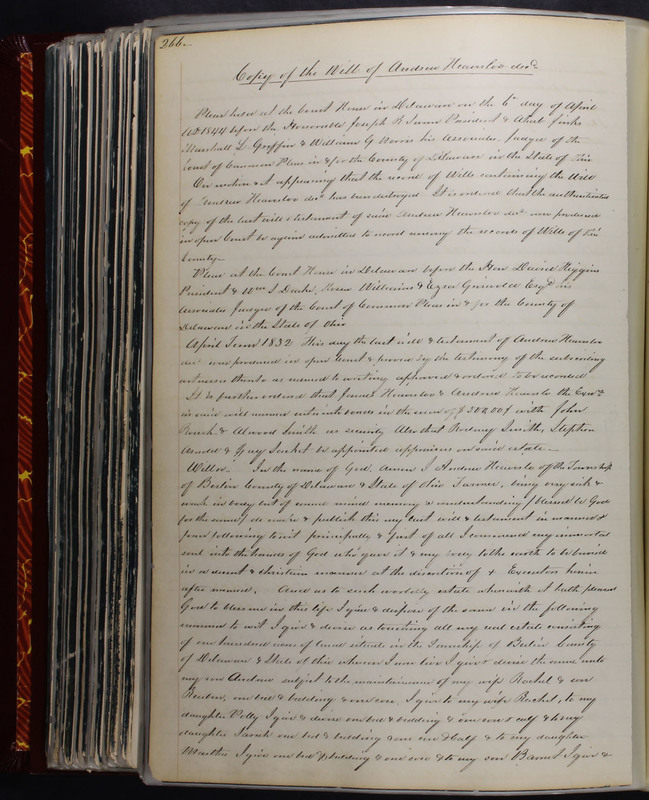 266
Copy of the Will of Andrew Heavrloo decd
Pleas held at the Court House in Delaware on the 6th day of April
AD 1844 before the Honorable Joseph R Swan President & Ahab Jinks
Marshall L. Griffin & William G Norris his Associates Judges of the
Court of Common Pleas in & for the County of Delaware in the State of Ohio
On motion & it appearing that the record of Wills containing the Will
of Andrew Heavrloo decd has been destroyed It is ordered that the authenticated
copy of the last will & testament of said Andrew Heavrloo decd now produced
in open Court be again admitted to record among the records of Wills of this
County
Pleas at the Court House in Delaware before the Hon David Higgins
President & Wm S Drake, Hosea Williams & Ezra Griswold Esqrs his
Associates Judges of the Court of Common Pleas in & for the County of
Delaware in the State of Ohio
April Term 1832 This day the last will & testament of Andrew Heavrloo
decd was produced in open Court & proven by the testimony of the subscribing
witnesses thereto as reduced to writing approved & ordered to be recorded
It is further ordered that James Heavrloo & Andrew Heavrlo the Exers
in said will named enter into bonds in the sum of $500,00 with John
Roush & Alwood Smith as security Also that Rodney Smith, Stephen
Arnold & Gray Socket be appointed appraisers on said estate
Will In the name of God Amen I Andrew Heavrlo of the Township
of Berlin County of Delaware & State of Ohio Farmer, being very sick &
weak in body but of sound mind memory & understanding (blessed be God
for the same) do make & publish this my last will & testament in manner &
form following to wit principally & first of all I commend my immortal
soul into the hands of God who gave it & my body to the earth to be buried
in a decent & christian manner at the discretion of & Executors herein
after named. And as to such worldly estate wherewith it hath pleased
God to bless me in this life I give & dispose of the same in the following
manner to wit I give & devise as touching all my real estate consisting
of one hundred acres of land situate in the Township of Berlin County
of Delaware & State of Ohio whereon I now live I give & devise the same unto
my son Andrew subject to the maintainance of my wife Rachel & son
Reuben, one bed & bedding & one cow, I give to my wife Rachel, to my
daughter Polly I give & devise one bed & bedding & one cow & calf & to my
daughter Sarah one bed & bedding & one cow & calf & to my daughter
Martha I give one bed & bedding & one cow & to my son Barnet I give &